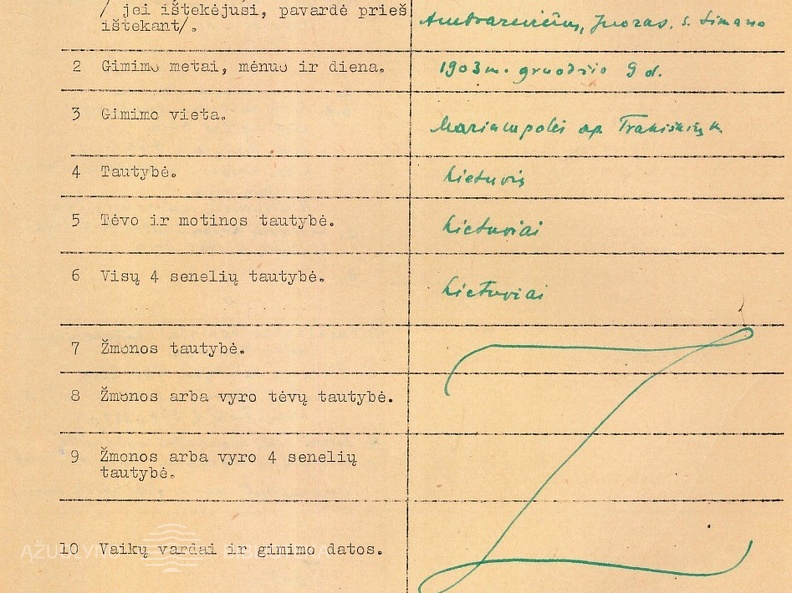 / jei ištekėjusi, pavardė prieš
ištekant/.
Ambrazevičius, Juozas, s. Simano
2 Gimimo metai, mėnuo ir diena.
1903 m. gruodžio 9 d.
3 Gimimo vieta.
Mariampolės ap. Trakiškių k.
4 Tautybė.
Lietuvis
5 Tėvo ir motinos tautybė.
Lietuviai
6 Visų 4 senelių tautybė.
Lietuviai
7 Žmonos tautybė.
8 Žmonos arba vyro tėvų tautybė.
9 Žmonos arba vyro 4 senelių
tautybė.
10 Vaikų vardai ir gimimo datos.